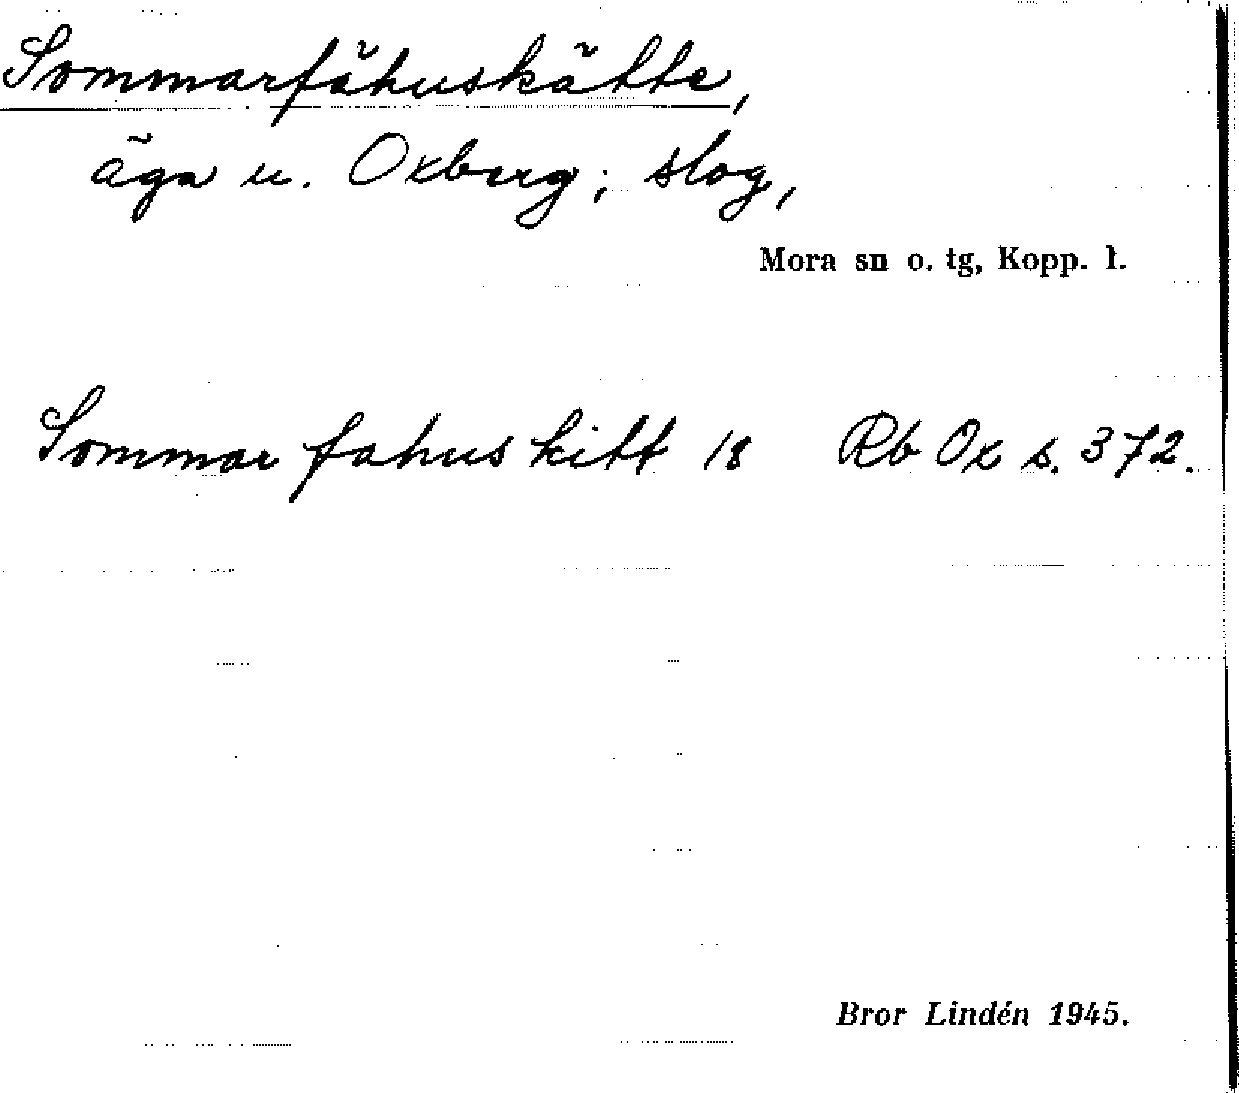 Sommarfähuskätte,
äga u. Oxberg; slog,
Mora sn o. tg, Kopp. l.
Sommar fahus kitt 18 Rb Ox s. 372.
Bror Lindén 1945.